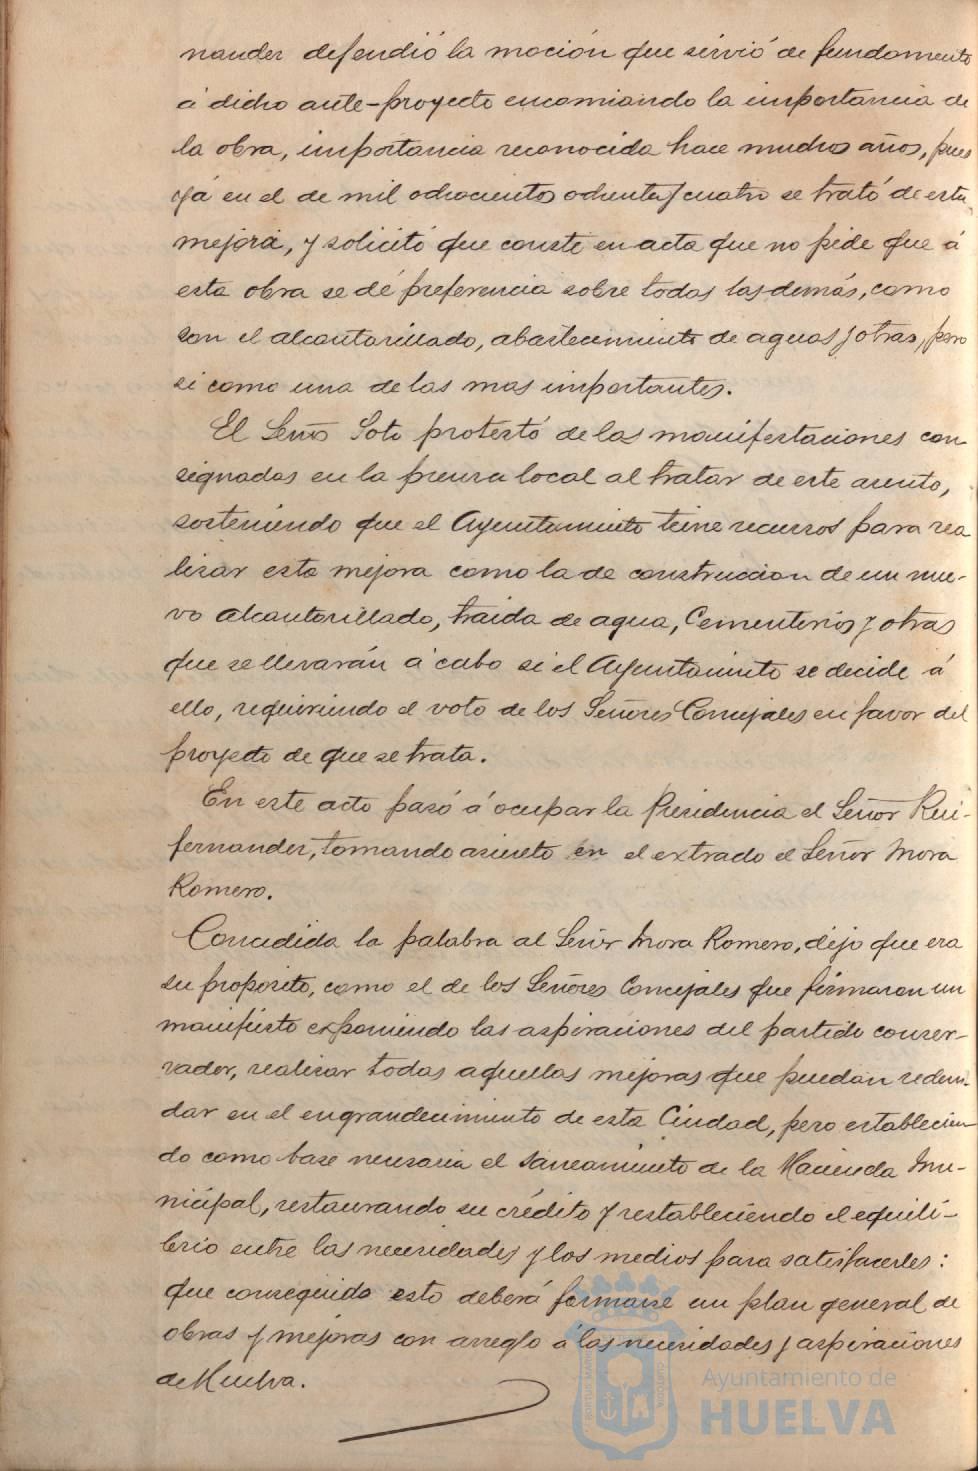 nander defendió la moción que sirvió de fundamento
á dicho ante-proyecto encomiando la importancia de
la obra, importancia reconocida hace muchos años, pues
yá en el de mil ochocientos ochenta y cuatro se trató de esta
mejora, y solicitó que conste en acta que no pide que á
esta obra se dé preferencia sobre todas las demás, como
son el alcantarillado, abastecimiento de aguas y otras, pero
si como una de las mas importantes.
El Señor Soto protestó de las manifestaciones con
signadas en la prensa local al tratar de este asunto,
sosteniendo que el Ayuntamiento tiene recursos para rea
lizar esta mejora como la de construccion de un nue-
vo alcantarillado, traida de agua, Cementerios y otras
que se llevarán á cabo si el Ayuntamiento se decide á
ello, requiriendo el voto de los Señores Concejales en favor del
proyecto de que se trata.
En este acto pasó á ocupar la Presidencia el Señor Rui-
fernandez, tomando asiento en el extrado el Señor Mora
Romero.
Concedida la palabra al Señor Mora Romero, dijo que era
su proposito, como el de los Señores Concejales que firmaron un
manifiesto exponiendo las aspiraciones del partido conser-
vador, realizar todas aquellas mejoras que puedan redun-
dar en el engrandecimiento de esta Ciudad, pero establecien
do como base necesaria el saneamiento de la Hacienda Mu-
nicipal, restaurando su crédito y restableciendo el equili-
brio entre las necesidades y los medios para satisfacerles:
que conseguido esto deberá formarse un plan general de
obras y mejoras con arreglo á las necesidades y aspiraciones
de Huelva.
Ayuntamiento de
HUELVA